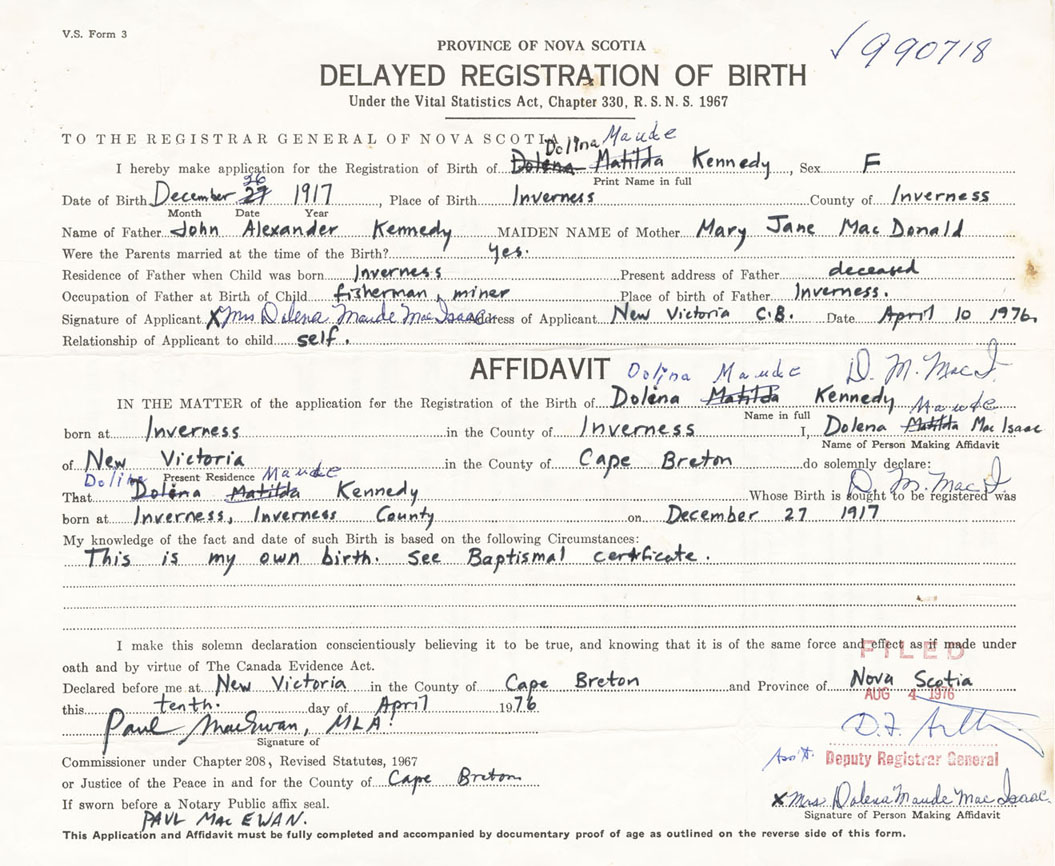 V.S. Form 3
✓990718
PROVINCE OF NOVA SCOTIA
DELAYED REGISTRATION OF BIRTH
Under the Vital Statistics Act, Chapter 330, R. S. N. S. 1967
TO THE REGISTRAR GENERAL OF NOVA SCOTIA
Dolina Maude
I hereby make application for the Registration of Birth of Dolena Matilda Kennedy, Sex F
Print Name in full
26
Date of Birth December 27 1917, Place of Birth Inverness County of Inverness
Month Date Year
Name of Father John Alexander Kennedy MAIDEN NAME of Mother Mary Jane MacDonald
Were the Parents married at the time of the Birth? Yes.
Residence of Father when Child was born Inverness Present address of Father deceased
Occupation of Father at Birth of Child fisherman, miner Place of birth of Father Inverness.
Signature of Applicant X Mrs Dolena Maude MacIsaac Address of Applicant New Victoria C.B. Date April 10 1976,
Relationship of Applicant to child self.
AFFIDAVIT
Dolina Maude D. M. MacI.
IN THE MATTER of the application for the Registration of the Birth of Dolena Matilda Kennedy
Name in full
Maude
born at Inverness in the County of Inverness I, Dolena Matilda Mac Isaac
Name of Person Making Affidavit
of New Victoria in the County of Cape Breton do solemnly declare:
Present Residence
Dolina Maude D. M. MacI
That Dolena Matilda Kennedy Whose Birth is sought to be registered was
born at Inverness, Inverness County on December 27 1917
My knowledge of the fact and date of such Birth is based on the following Circumstances:
This is my own birth. See Baptismal certificate.
I make this solemn declaration conscientiously believing it to be true, and knowing that it is of the same force and effect as if made under
oath and by virtue of The Canada Evidence Act.
FILED
Declared before me at New Victoria in the County of Cape Breton and Province of Nova Scotia
AUG 4 1976
this tenth. day of April 1976
Paul MacEwan, MLA
Signature of
Commissioner under Chapter 208, Revised Statutes, 1967
Ass't. Deputy Registrar General
or Justice of the Peace in and for the County of Cape Breton
X Mrs. Dolena Maude MacIsaac
If sworn before a Notary Public affix seal.
Signature of Person Making Affidavit
PAUL MacEWAN.
This Application and Affidavit must be fully completed and accompanied by documentary proof of age as outlined on the reverse side of this form.